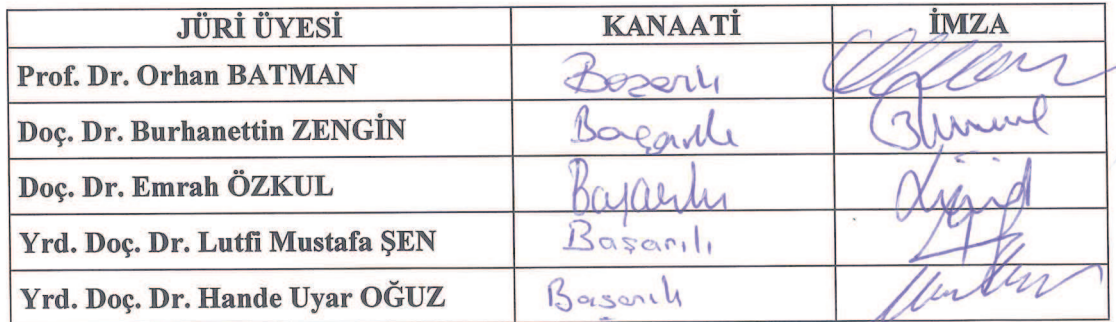 JÜRİ ÜYESİ KANAATİ İMZA
Prof. Dr. Orhan BATMAN Başarılı
Doç. Dr. Burhanettin ZENGİN Başarılı
Doç. Dr. Emrah ÖZKUL Başarılı
Yrd. Doç. Dr. Lutfi Mustafa ŞEN Başarılı
Yrd. Doç. Dr. Hande Uyar OĞUZ Başarılı